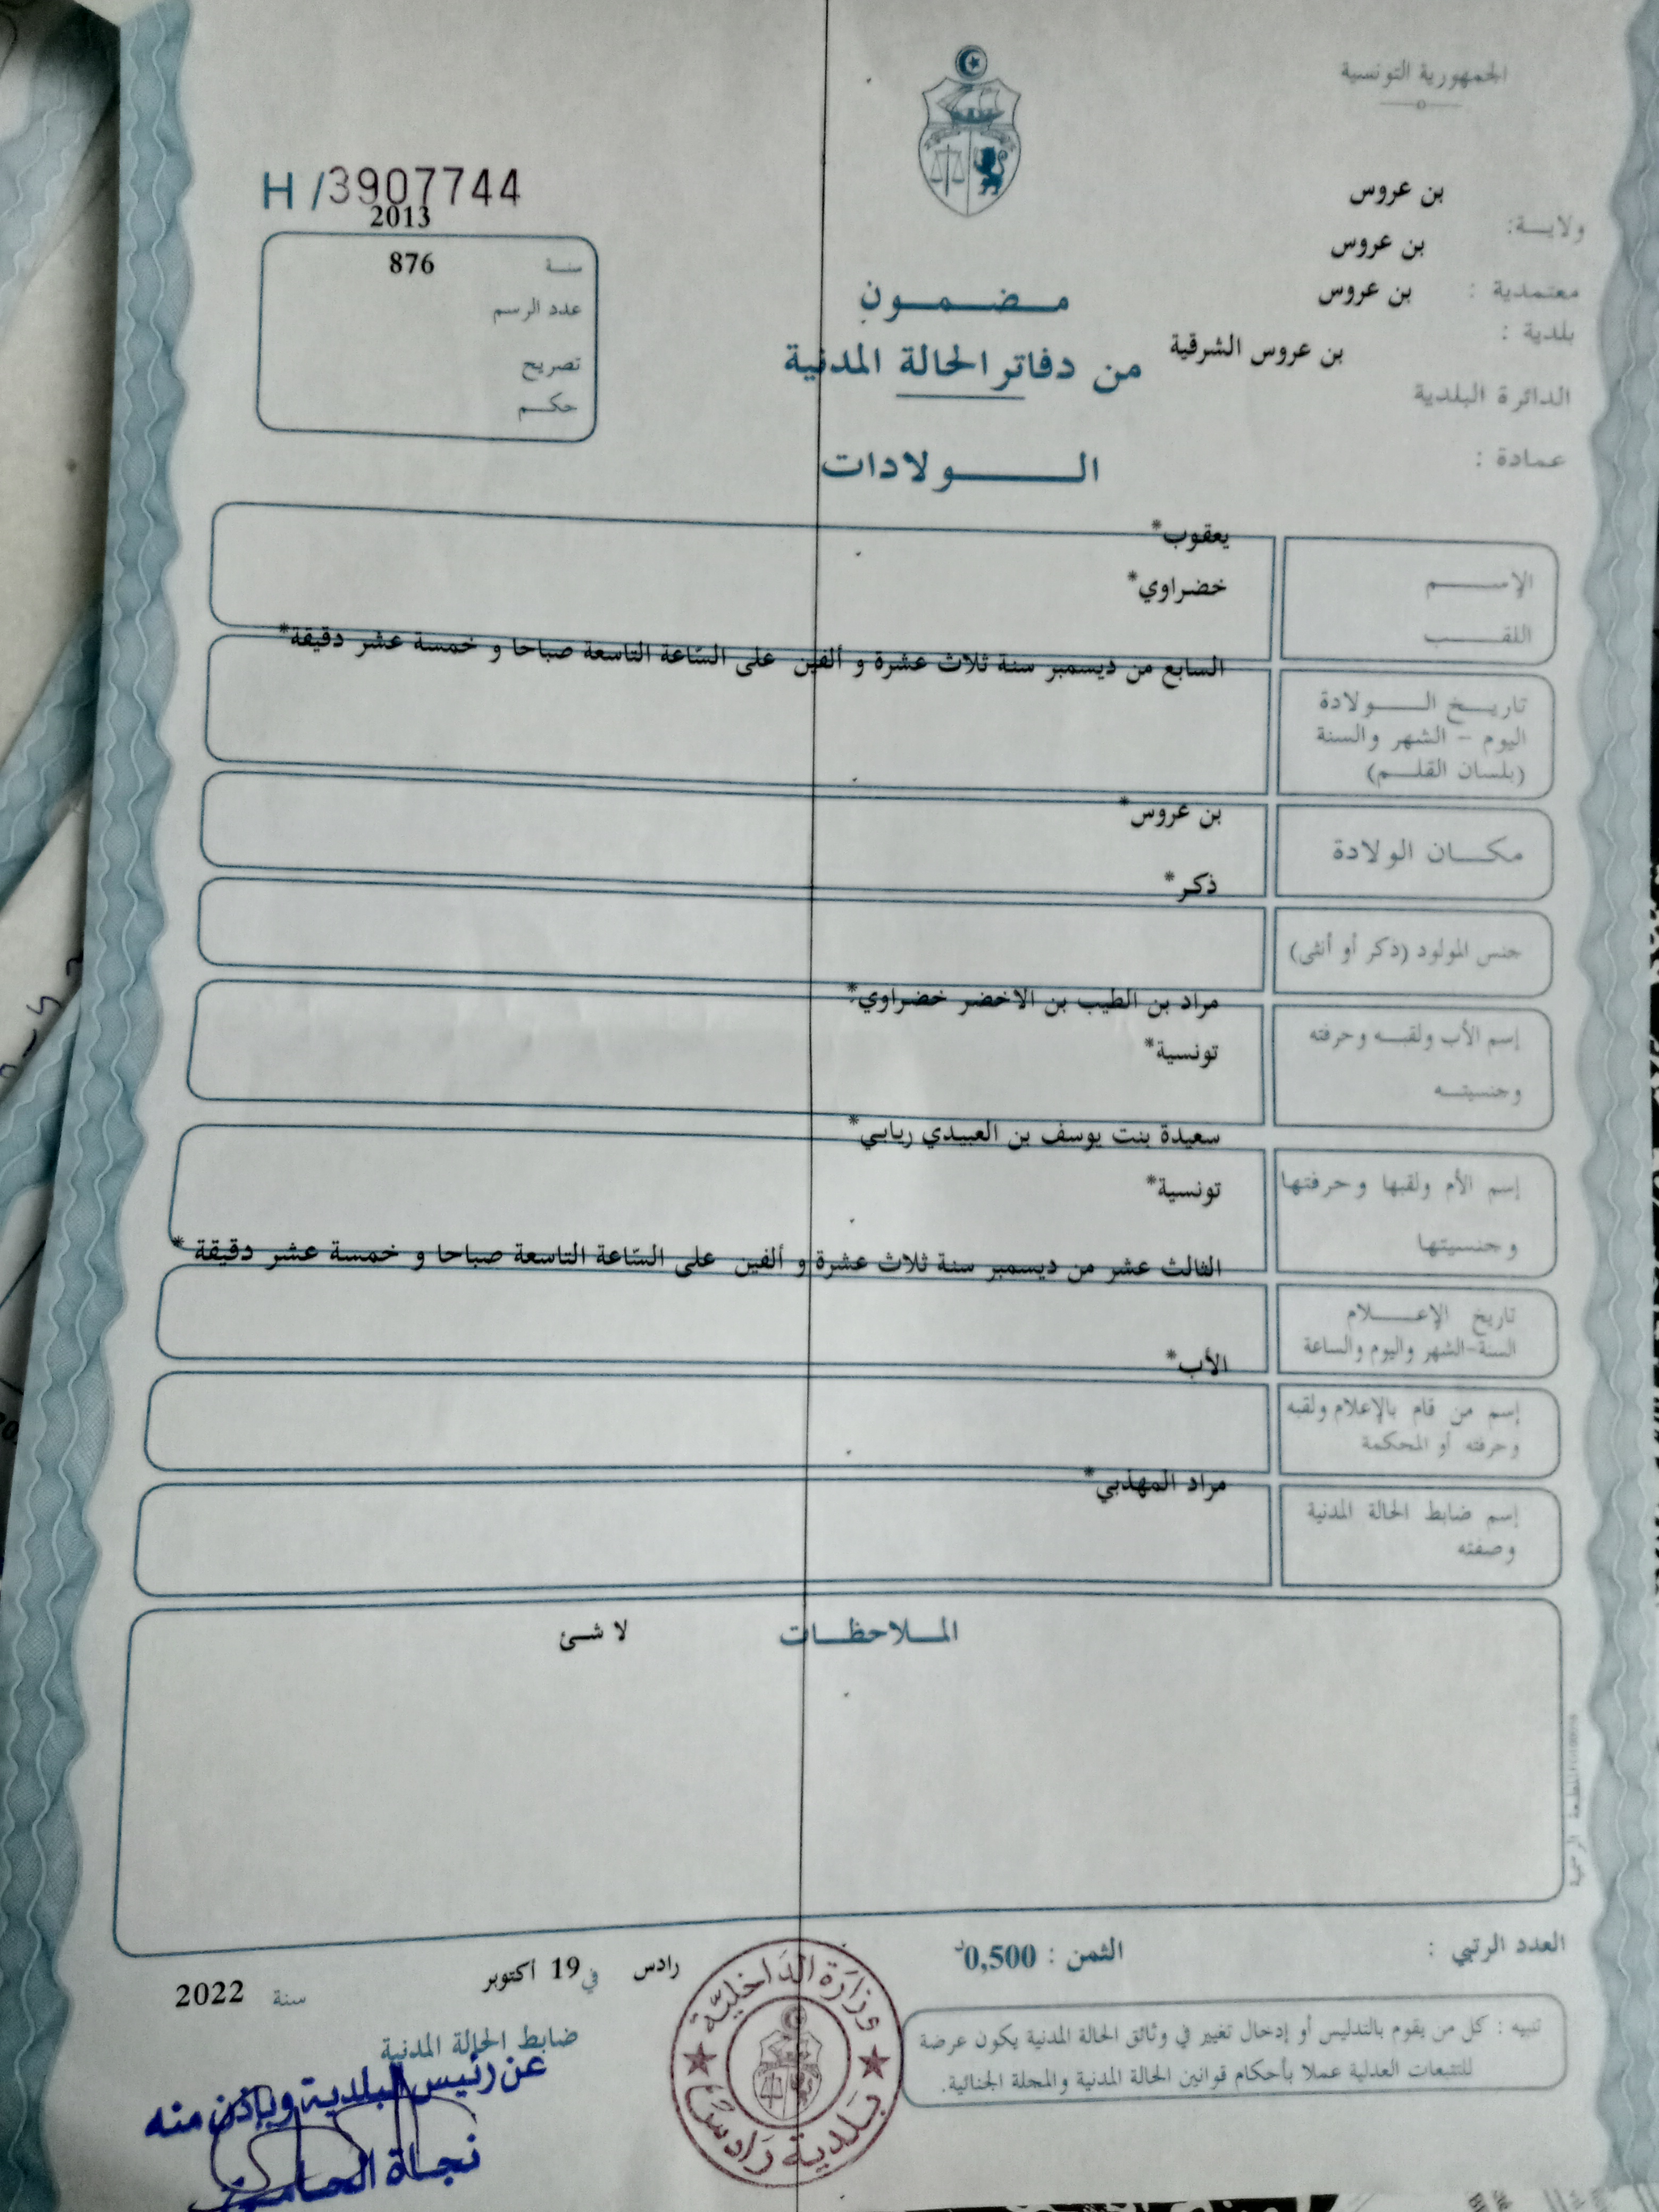 الجمهورية التونسية
H /3907744
2013
بن عروس
ولايـــة:
بن عروس
سنـــة
876
معتمدية :
بن عروس
عدد الرسم
مـــضـــمـــون
بلدية :
بن عروس الشرقية
من دفاتر الحالة المدنية
تصريح
الدائرة البلدية
حكـــم
عمادة :
الـــــولادات
يعقوب*
الإســـــم
خضراوي*
اللقـــــب
السابع من ديسمبر سنة ثلاث عشرة و ألفين على السّاعة التاسعة صباحا و خمسة عشر دقيقة*
تاريـــخ الـــــولادة
اليوم - الشهر والسنة
(بلسان القلـــم)
بن عروس*
مكـــان الولادة
ذكر*
جنس المولود (ذكر أو أنثى)
مراد بن الطيب بن الاخضر خضراوي*
إسم الأب ولقبـــه وحرفته
تونسية*
وجنسيتـــه
سعيدة بنت يوسف بن العبيدي ريابي*
إسم الأم ولقبها وحرفتها
تونسية*
وجنسيتها
الثالث عشر من ديسمبر سنة ثلاث عشرة و ألفين على السّاعة التاسعة صباحا و خمسة عشر دقيقة *
تاريخ الإعـــلام
السنة-الشهر واليوم والساعة
الأب*
إسم من قام بالإعلام ولقبه
وحرفته أو المحكمة
مراد المهذبي*
إسم ضابط الحالة المدنية
وصفته
الملاحظـــات
لا شئ
العدد الرتبي :
الثمن : 0,500د
رادس في 19 أكتوبر سنة 2022
ضابط الحالة المدنية
تنبيه : كل من يقوم بالتدليس أو إدخال تغيير في وثائق الحالة المدنية يكون عرضة
للتتبعات العدلية عملا بأحكام قوانين الحالة المدنية والمجلة الجنائية.
وزارة الداخلية
بلدية رادس
عن رئيس البلدية وبإذن منه
نجاة